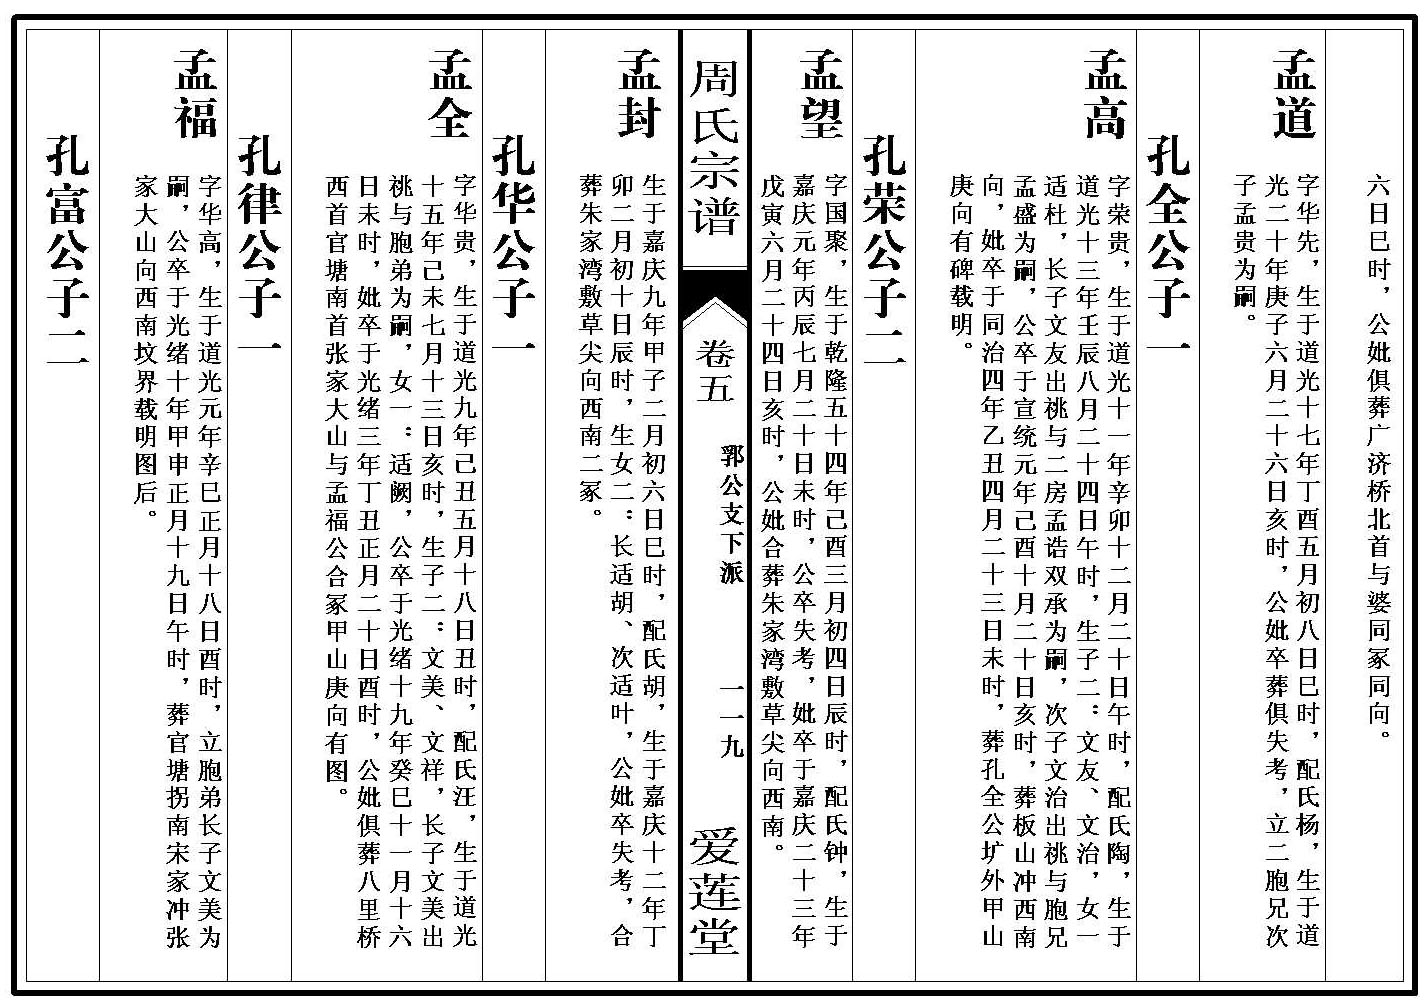 六日巳时，公妣俱葬广济桥北首与婆同冢同向。
孟道
字华先，生于道光十七年丁酉五月初八日巳时，配氏杨，生于道
光二十年庚子六月二十六日亥时，公妣卒葬俱失考，立二胞兄次
子孟贵为嗣。
孔全公子一
孟高
字荣贵，生于道光十一年辛卯十二月二十日午时，配氏陶，生于
道光十三年壬辰八月二十四日午时，生子二：文友、文治，女一
适杜，长子文友出祧与二房孟诰双承为嗣，次子文治出祧与胞兄
孟盛为嗣，公卒于宣统元年己酉十月二十日亥时，葬板山冲西南
向，妣卒于同治四年乙丑四月二十三日未时，葬孔全公圹外甲山
庚向有碑载明。
孔荣公子二
孟望
字国聚，生于乾隆五十四年己酉三月初四日辰时，配氏钟，生于
嘉庆元年丙辰七月二十日未时，公卒失考，妣卒于嘉庆二十三年
戊寅六月二十四日亥时，公妣合葬朱家湾敷草尖向西南。
周氏宗谱
卷五
郭公支下派
一一九
爱莲堂
孟封
生于嘉庆九年甲子二月初六日巳时，配氏胡，生于嘉庆十二年丁
卯二月初十日辰时，生女二：长适胡、次适叶，公妣卒失考，合
葬朱家湾敷草尖向西南二冢。
孔华公子一
孟全
字华贵，生于道光九年己丑五月十八日丑时，配氏汪，生于道光
十五年己未七月十三日亥时，生子二：文美、文祥，长子文美出
祧与胞弟为嗣，女一：适阙，公卒于光绪十九年癸巳十一月十六
日未时，妣卒于光绪三年丁丑正月二十日酉时，公妣俱葬八里桥
西首官塘南首张家大山与孟福公合冢甲山庚向有图。
孔律公子一
孟福
字华高，生于道光元年辛巳正月十八日酉时，立胞弟长子文美为
嗣，公卒于光绪十年甲申正月十九日午时，葬官塘拐南宋家冲张
家大山向西南坟界载明图后。
孔富公子二